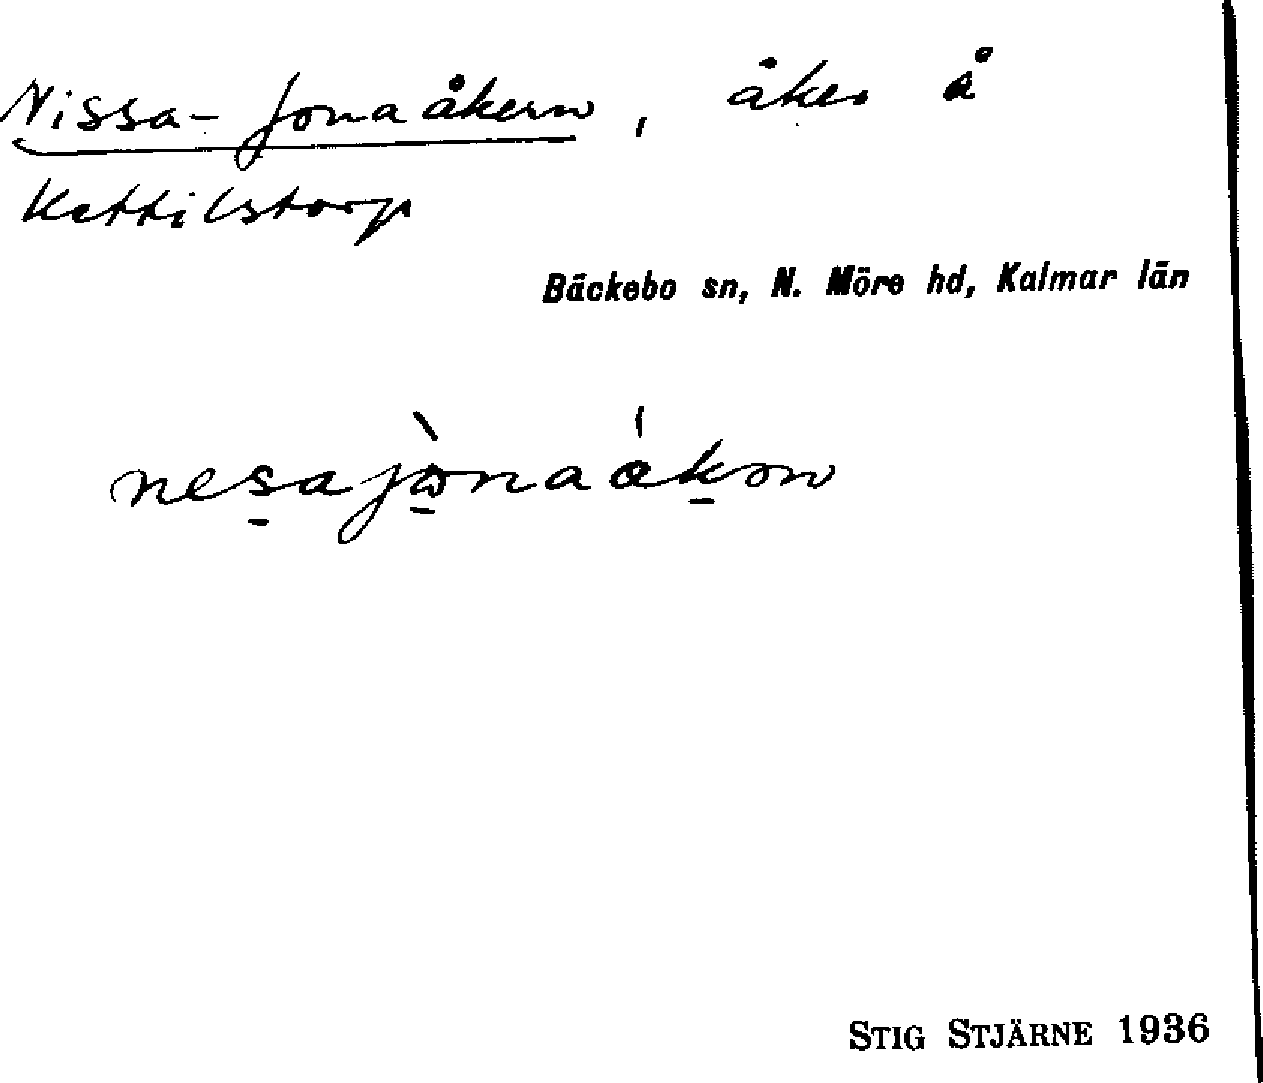 Nissa-Jonaåkern, åker å
Kettilstorp
Bäckebo sn, N. Möre hd, Kalmar län
STIG STJÄRNE 1936